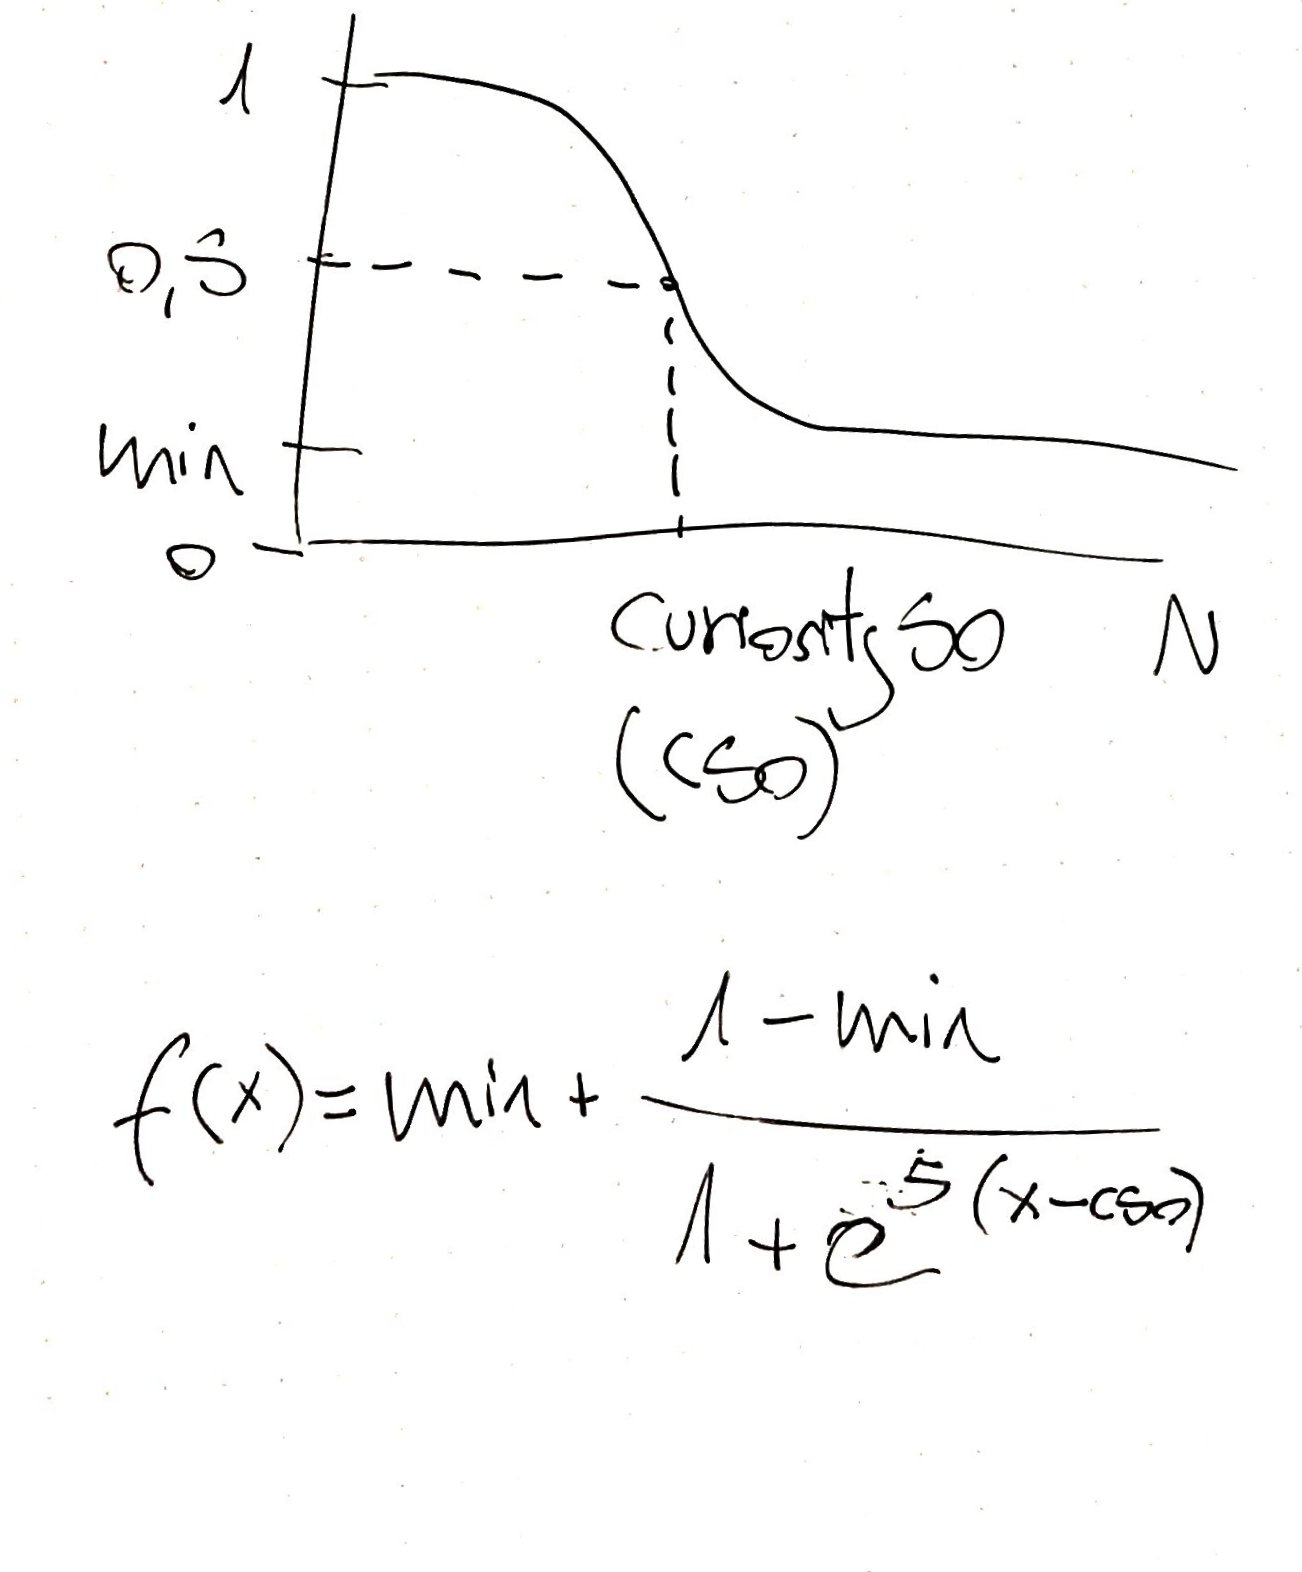 1
0,5
min
0
Curiosity 50
N
(c50)
f(x) = min + \frac{1 - min}{1 + e^{5(x - c50)}}